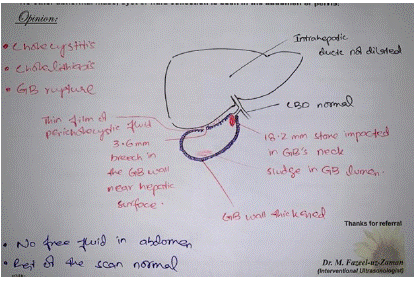 Opinion:
• Cholecystitis
• Cholelithiasis
• GB rupture
Intrahepatic
ducts not dilated
CBD normal
Thin film of
pericholecystic fluid
3.6mm
breech in
the GB wall
near hepatic
surface.
18.2 mm stone impacted
in GB's neck
sludge in GB lumen.
GB wall thickened
Thanks for referral
• No free fluid in abdomen
• Rest of the scan normal
Dr. M. Fazeel-uz-Zaman
(Interventional Ultrasonologist)